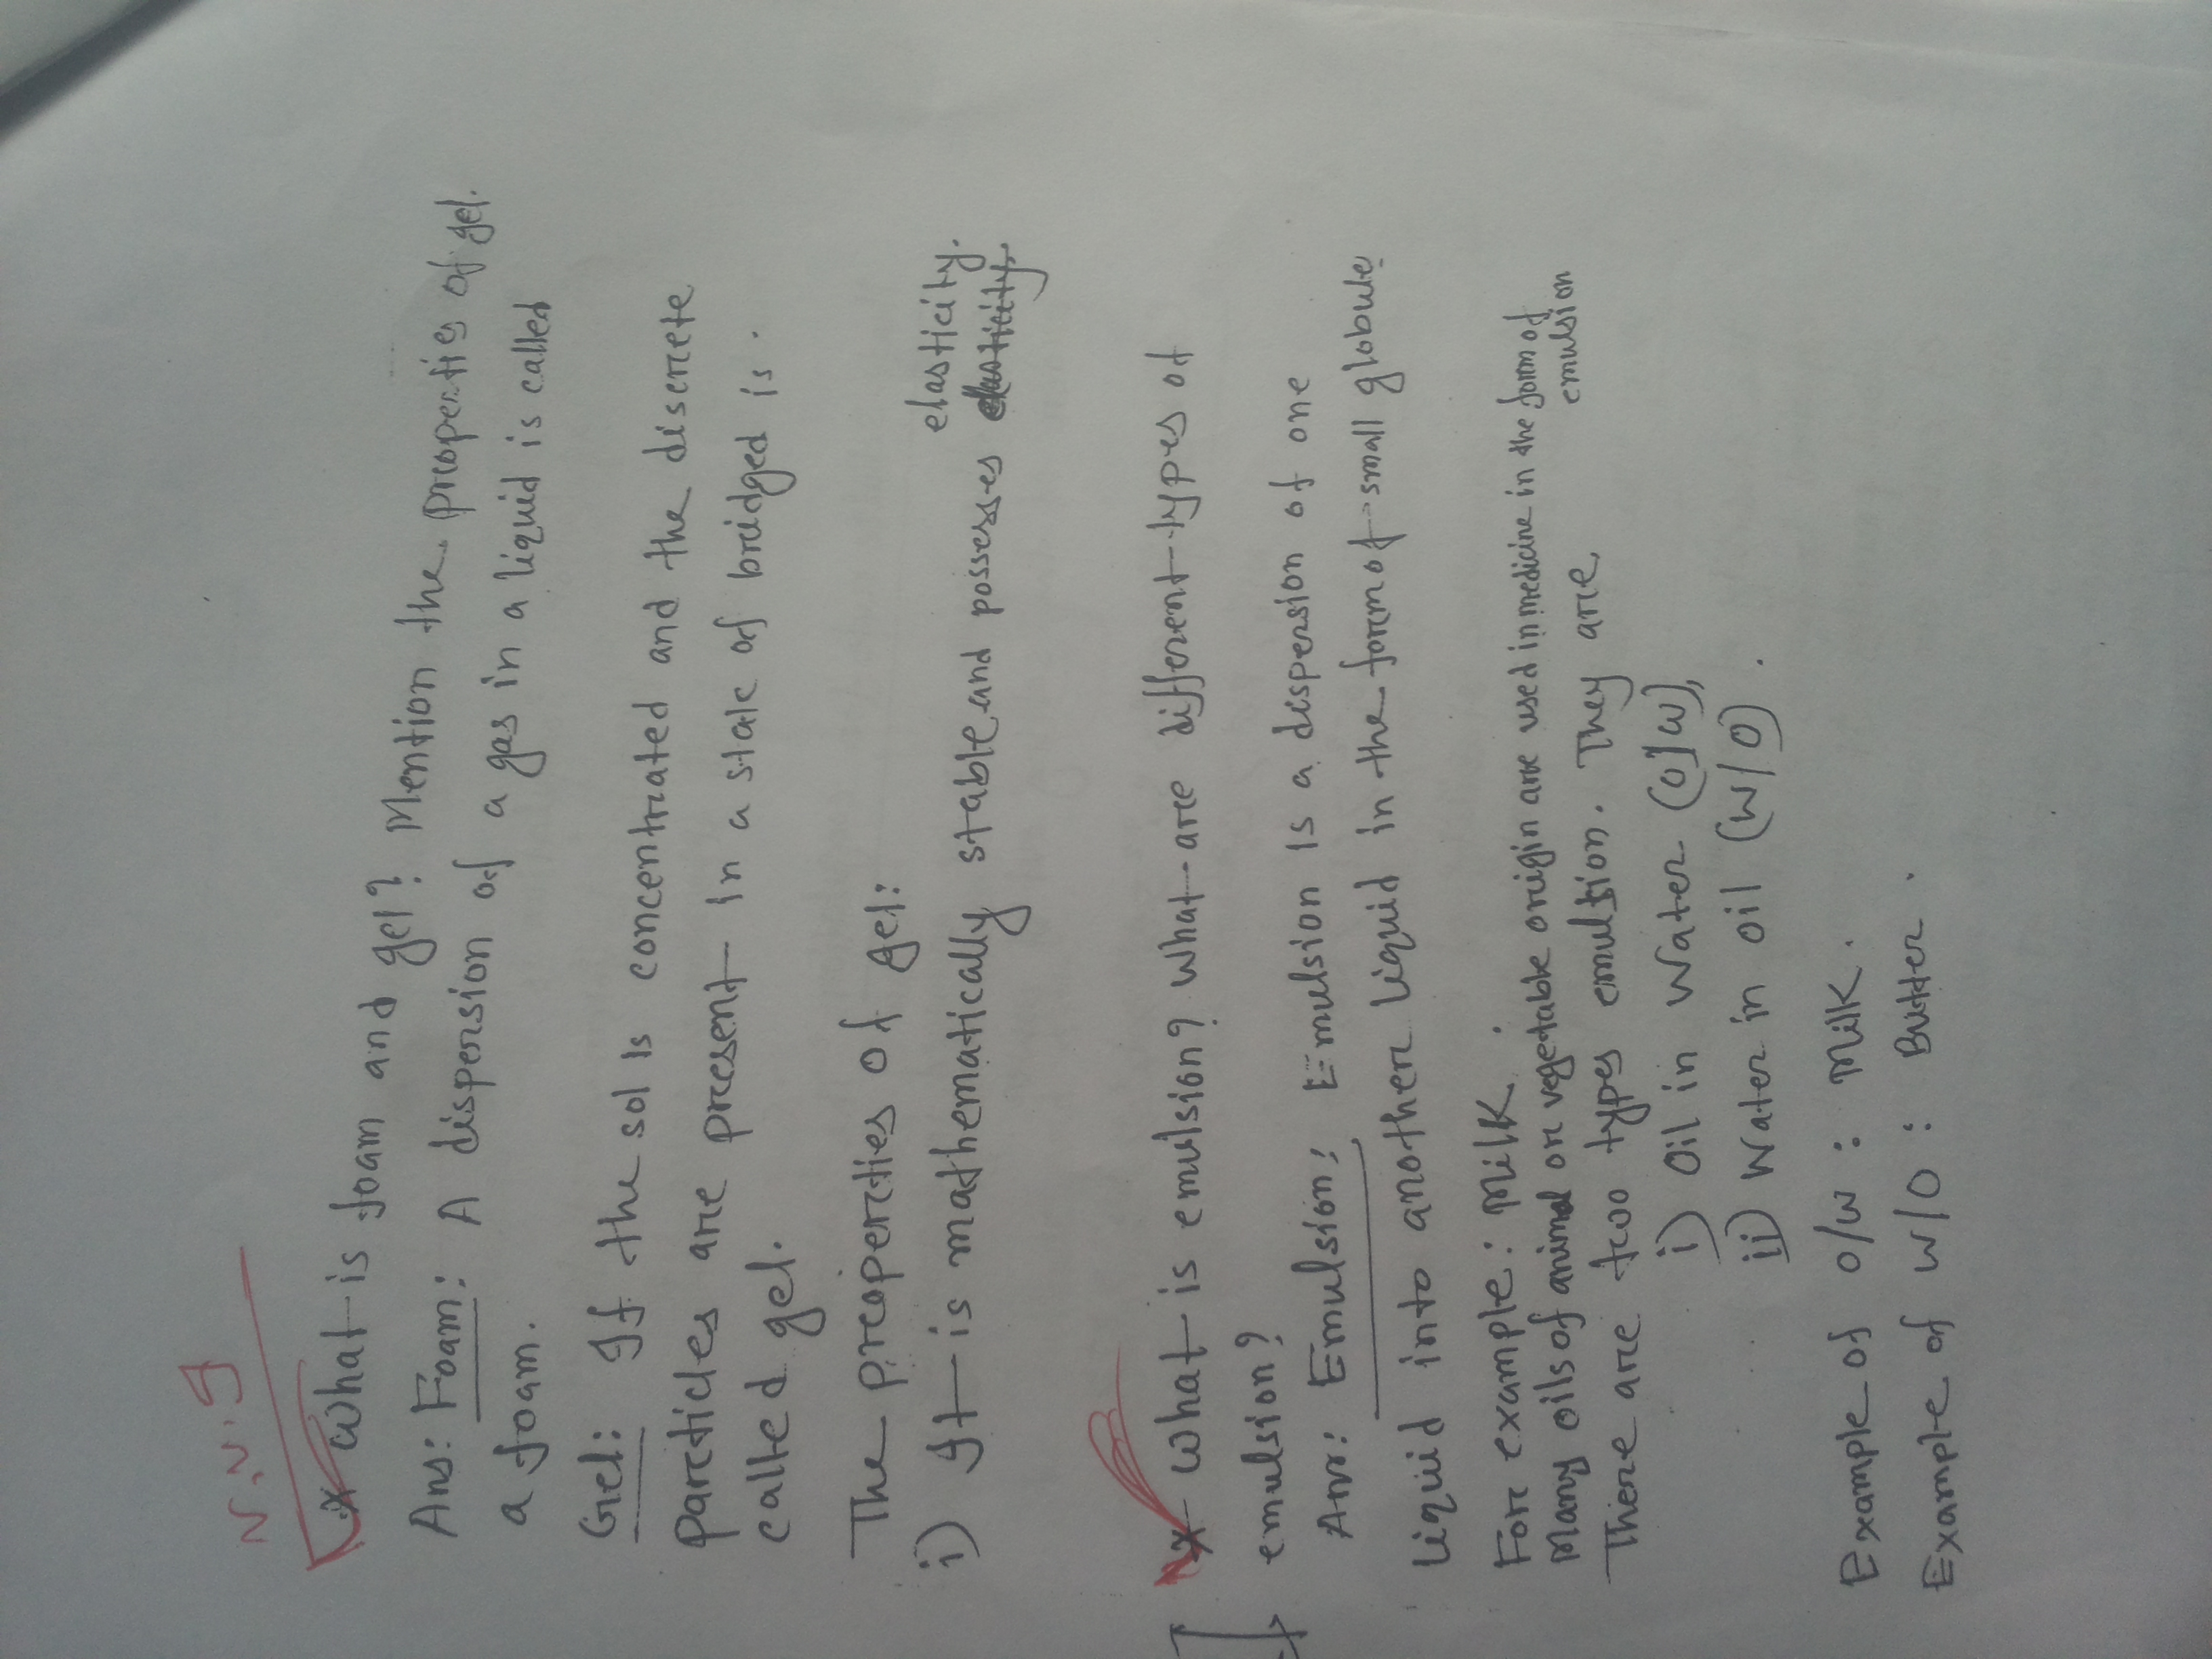 N.V.I
* What is foam and gel? Mention the properties of gel.
Ans: Foam: A dispersion of a gas in a liquid is called
a foam.
Gel: If the sol is concentrated and the discrete
particles are present in a state of bridged is
called gel.
The properties of gel:
i) It is mathematically stable and possesses elasticity.
* What is emulsion? What are different types of
emulsion?
Ans: Emulsion: Emulsion is a dispersion of one
liquid into another liquid in the form of small globule
For example: Milk.
Many oils of animal or vegetable origin are used in medicine in the form of emulsion
There are two types emulsion. They are
i) Oil in water (O/W),
ii) Water in oil (W/O).
Example of O/W : Milk.
Example of W/O : Butter.